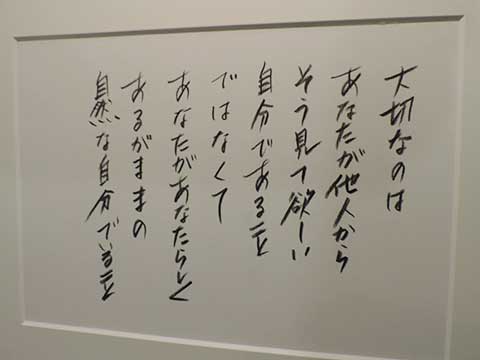 大切なのは
あなたが他人から
そう見て欲しい
自分であること
ではなくて
あなたがあなたらしく
あるがままの
自然な自分でいること